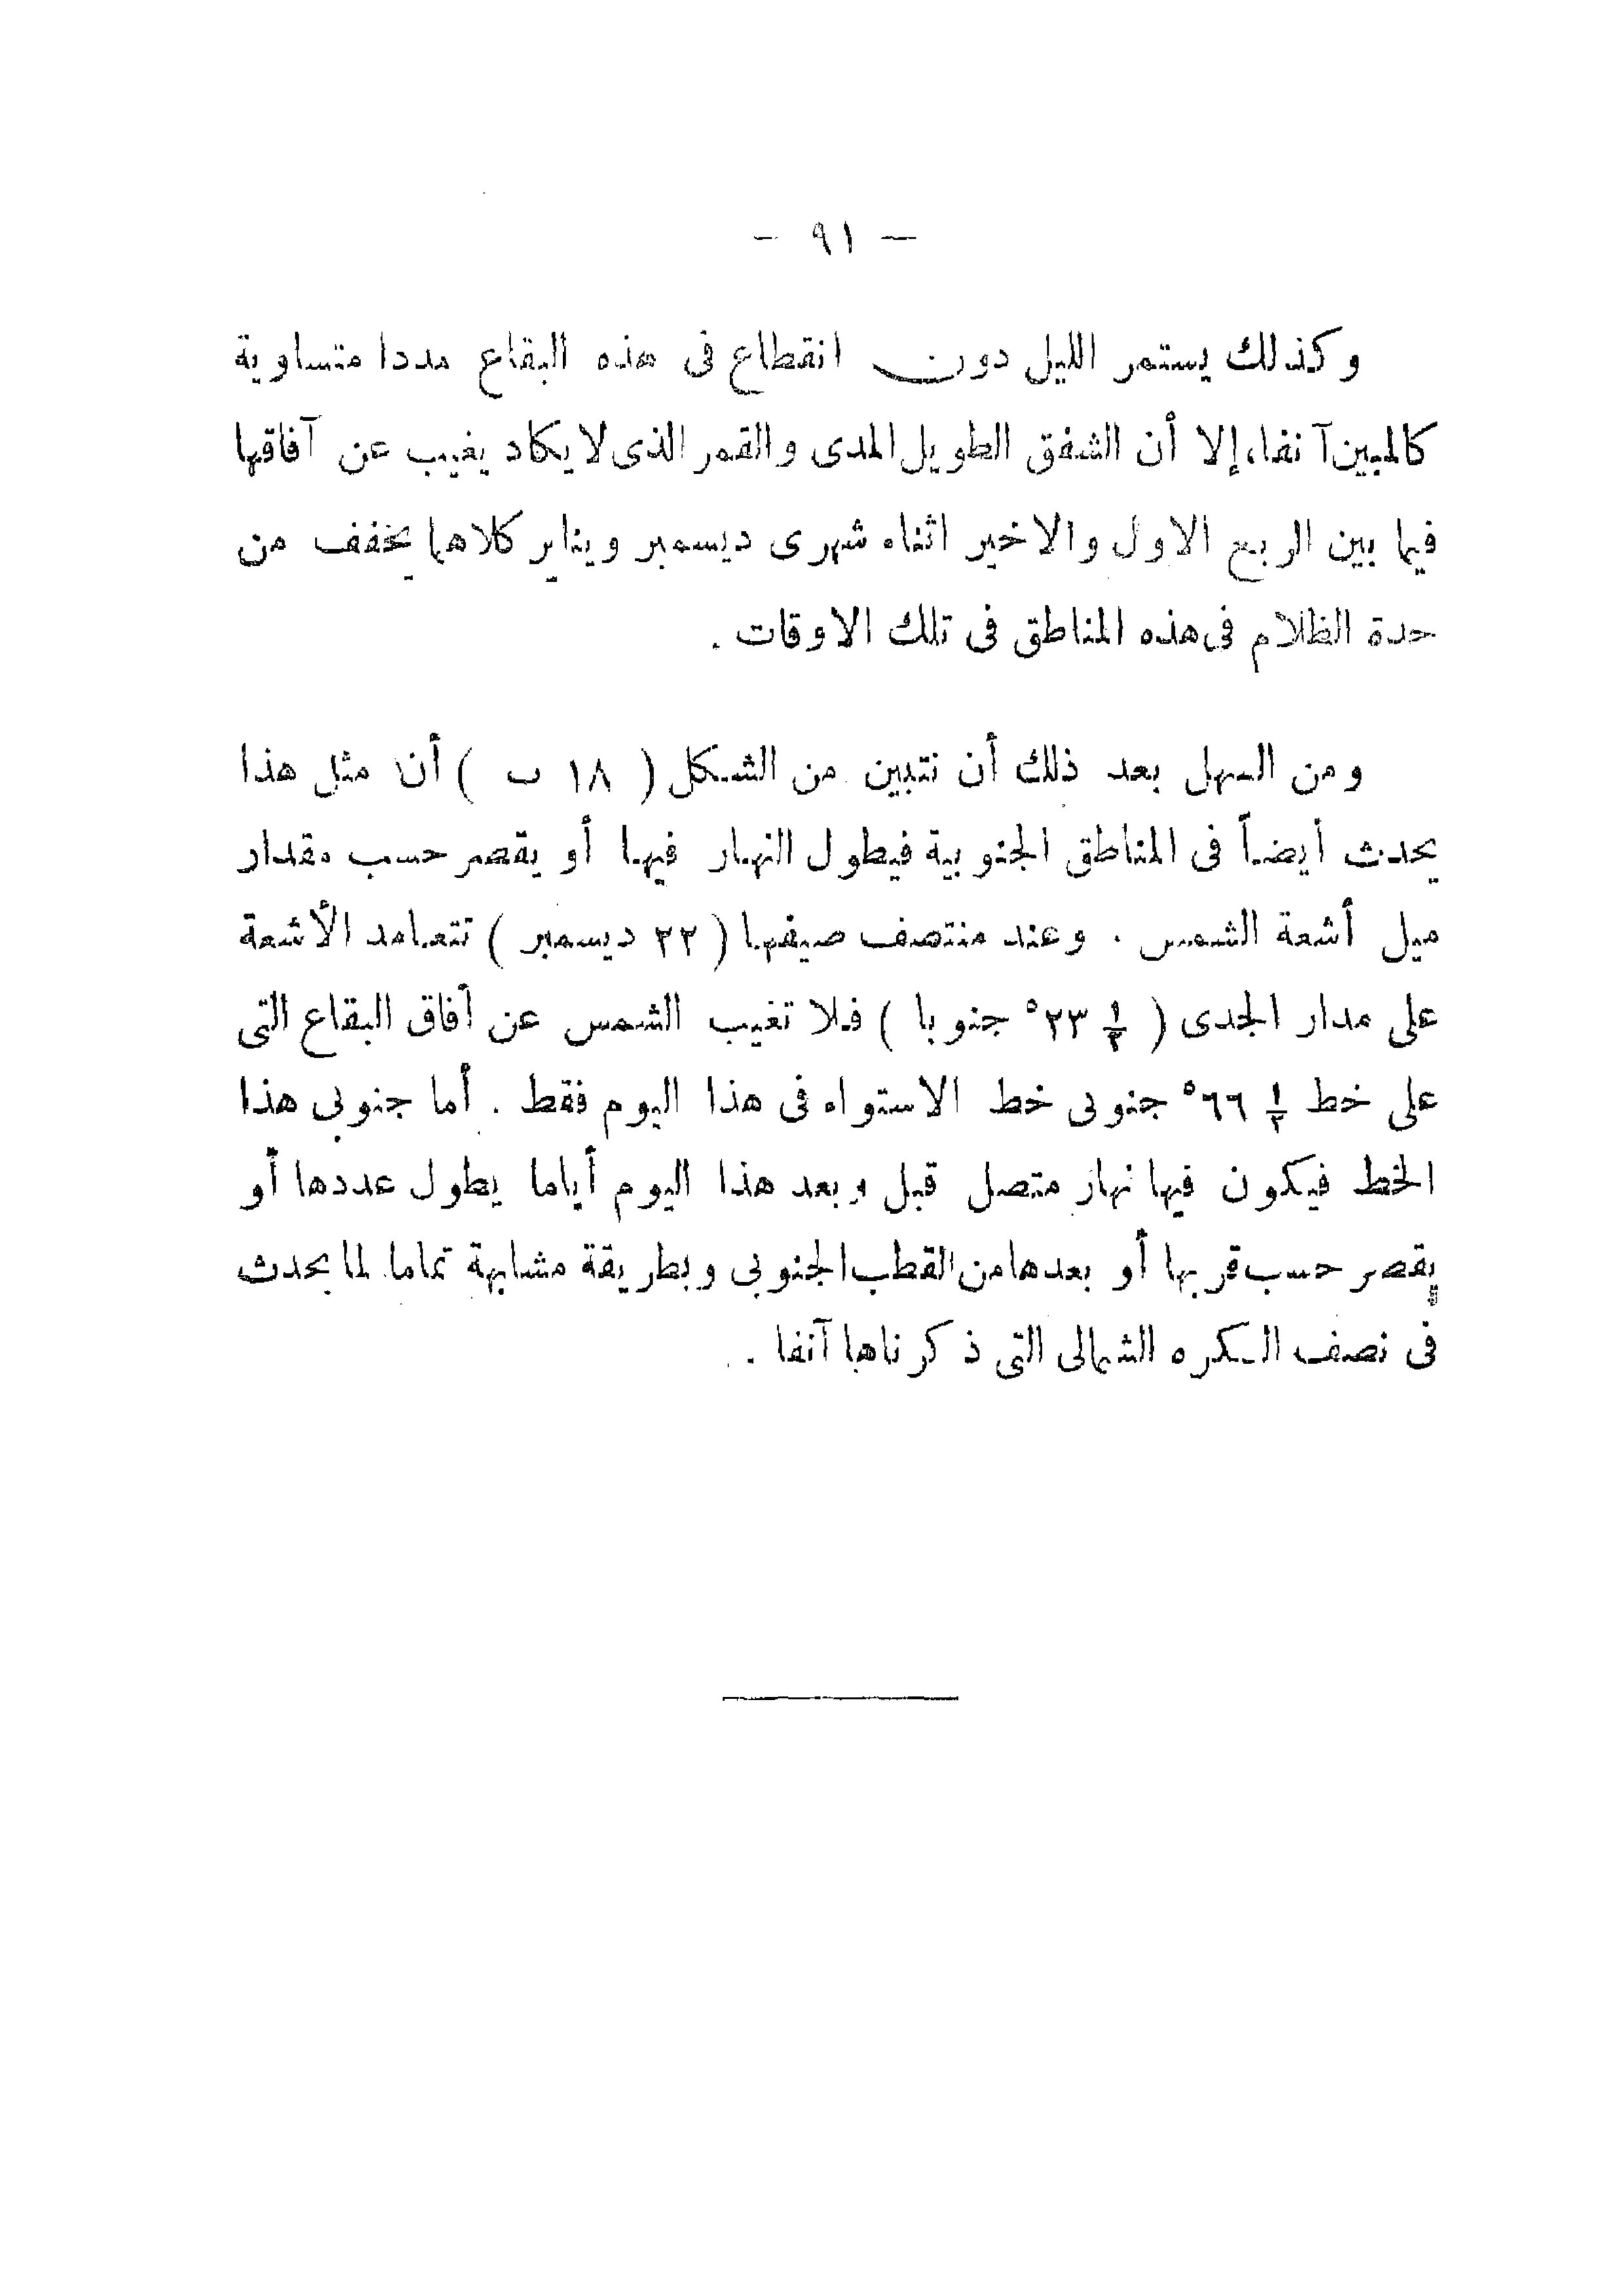 — ٩١ —
وكذلك يستمر الليل دون انقطاع فى هذه البقاع مددا متساوية
كالمبين آنفا، إلا أن الشفق الطويل المدى والقمر الذى لا يكاد يغيب عن آفاقها
فيما بين الربع الاول والاخير اثناء شهرى ديسمبر ويناير كلاهما يخفف من
حدة الظلام فى هذه المناطق فى تلك الاوقات .
ومن السهل بعد ذلك أن نتبين من الشكل ( ١٨ ب ) أن مثل هذا
يحدث أيضاً فى المناطق الجنوبية فيطول النهار فيها أو يقصر حسب مقدار
ميل أشعة الشمس . وعند منتصف صيفها ( ٢٢ ديسمبر ) تتعامد الأشعة
على مدار الجدى ( ١/٢ ٢٣° جنوبا ) فلا تغيب الشمس عن آفاق البقاع التى
على خط ١/٢ ٦٦° جنوبى خط الاستواء فى هذا اليوم فقط . أما جنوبى هذا
الخط فيكون فيها نهار متصل قبل وبعد هذا اليوم أياما يطول عددها أو
يقصر حسب قربها أو بعدها من القطب الجنوبى وبطريقة مشابهة تماما لما يحدث
فى نصف الكره الشمالى التى ذكرناها آنفا .